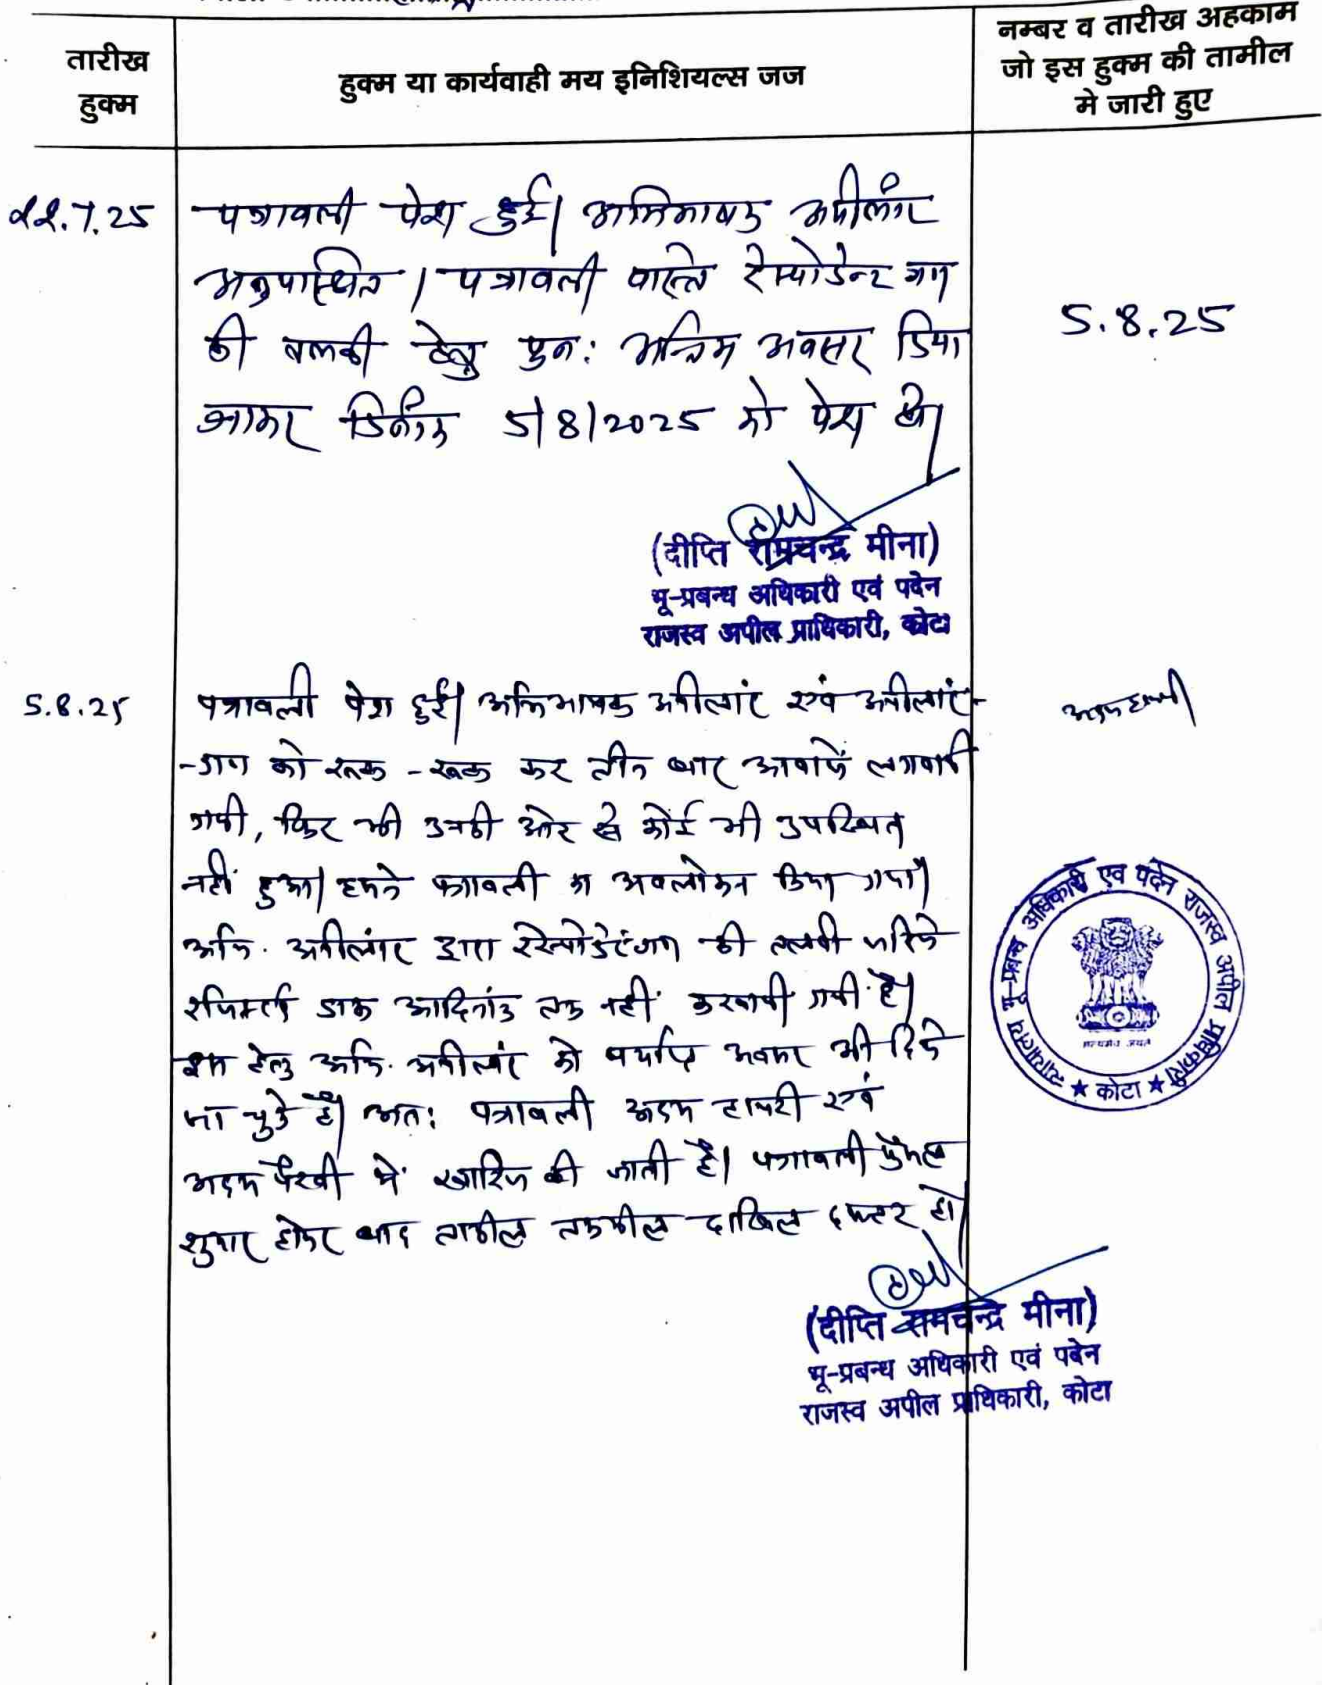 तारीख
हुक्म
हुक्म या कार्यवाही मय इनिशियल्स जज
नम्बर व तारीख अहकाम
जो इस हुक्म की तामील
मे जारी हुए
22.7.25
पत्रावली पेश हुई। अभिभाषक अपीलांट
अनुपास्थित। पत्रावली वास्ते रेस्पोडेन्ट गण
की तलबी हेतु पुन: अन्तिम अवसर दिया
जाकर दिनांक 5/8/2025 को पेश हो।
5.8.25
(दीप्ति रामचन्द्र मीना)
भू-प्रबन्ध अधिकारी एवं पदेन
राजस्व अपील प्राधिकारी, कोटा
5.8.25
पत्रावली पेश हुई। अभिभाषक अपीलांट एवं अपीलांट-
-गण को रूक-रूक कर तीन बार आवाजें लगवाई
गयी, फिर भी उनकी ओर से कोई भी उपस्थित
नहीं हुआ। हमने पत्रावली का अवलोकन किया गया।
अभि. अपीलांट द्वारा रेस्पोडेंटगण की तलबी जरिये
रजिस्टर्ड डाक आदिनांक तक नहीं करवायी गयी है।
इस हेतु अभि. अपीलांट को पर्याप्त अवसर भी दिये
जा चुके है। अत: पत्रावली अदम हाजरी एवं
अदम पैरवी में खारिज की जाती है। पत्रावली फैसल
शुमार होकर बाद तामील तकमील दाखिल दफ्तर हो।
न्यायालय भू-प्रबन्ध अधिकारी एवं पदेन राजस्व अपील प्राधिकारी
सत्यमेव जयते
★ कोटा ★
(दीप्ति रामचन्द्र मीना)
भू-प्रबन्ध अधिकारी एवं पदेन
राजस्व अपील प्राधिकारी, कोटा